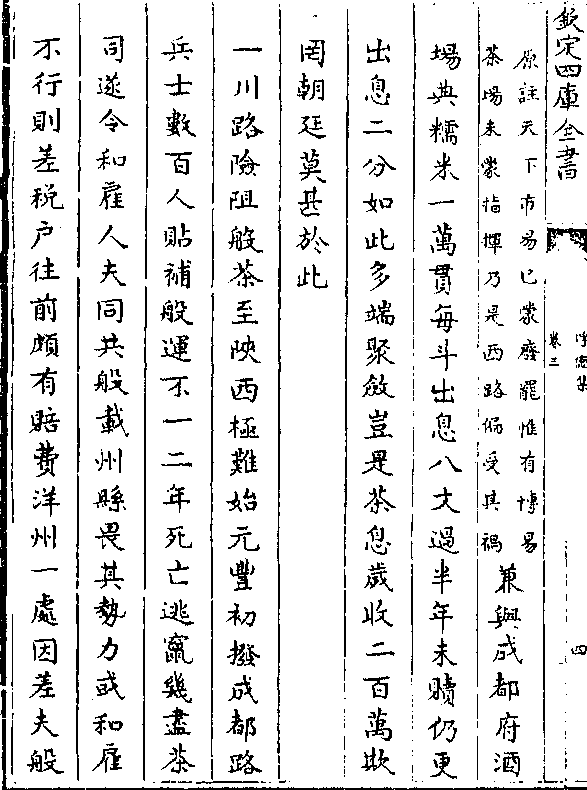 欽定四庫全書
淨德集
卷三
四
原註天下市易已蒙廢罷惟有博易
茶場未蒙指揮乃是西路偏受其禍
兼與成都府酒
場典糯米一萬貫每斗出息八文過半年未贖仍更
出息二分如此多端聚斂豈是茶息歲收二百萬欺
罔朝廷莫甚於此
一川路險阻般茶至陜西極難始元豐初撥成都路
兵士數百人貼補般運不一二年死亡逃竄幾盡茶
司遂令和雇人夫同共般載州縣畏其勢力或和雇
不行則差税户往前頗有賠費洋州一處因差夫般